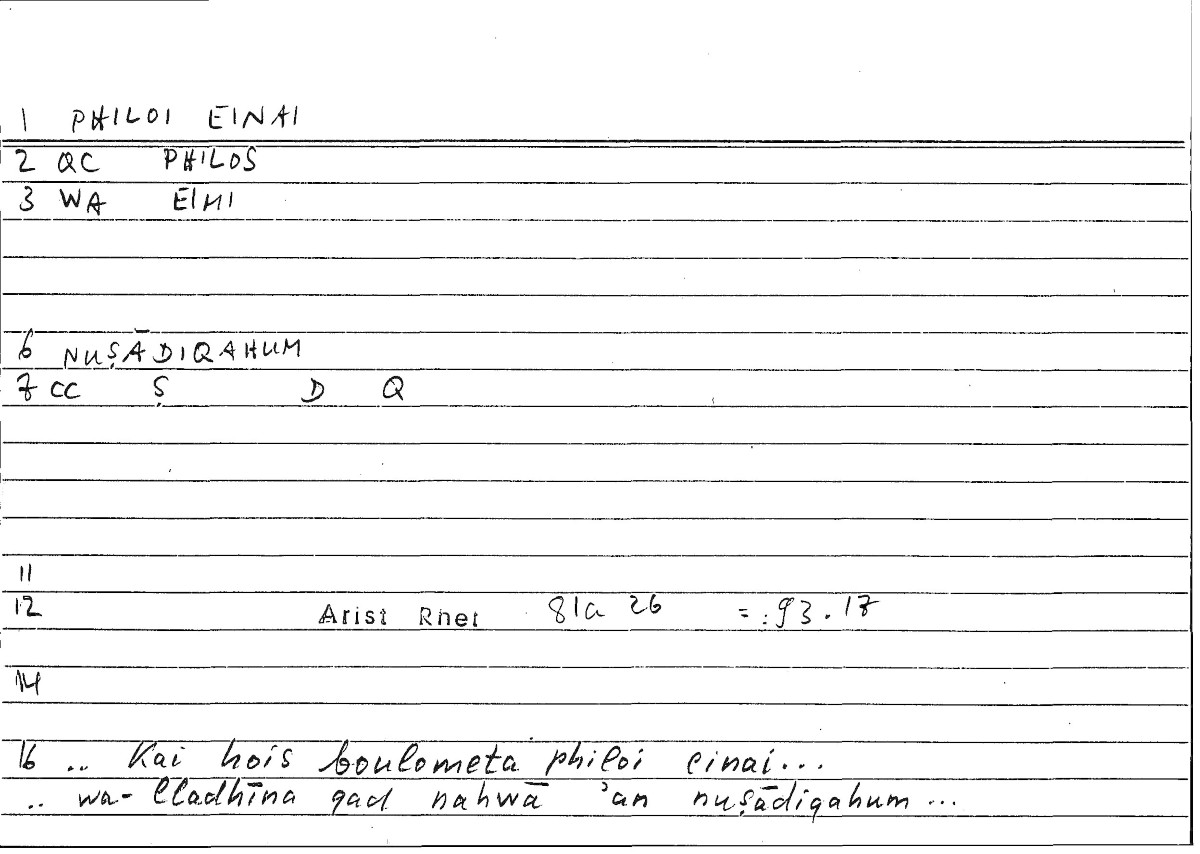 1 PHILOI EINAI
2 QC PHILOS
3 WA EIMI
6 NUṢĀDIQAHUM
7 CC Ṣ D Q
11
12 Arist Rhet 81a 26 = :93.17
14
16 .. Kai hois boulometa philoi einai...
.. wa-lladhīna qad nahwā ʾan nuṣādiqahum ...